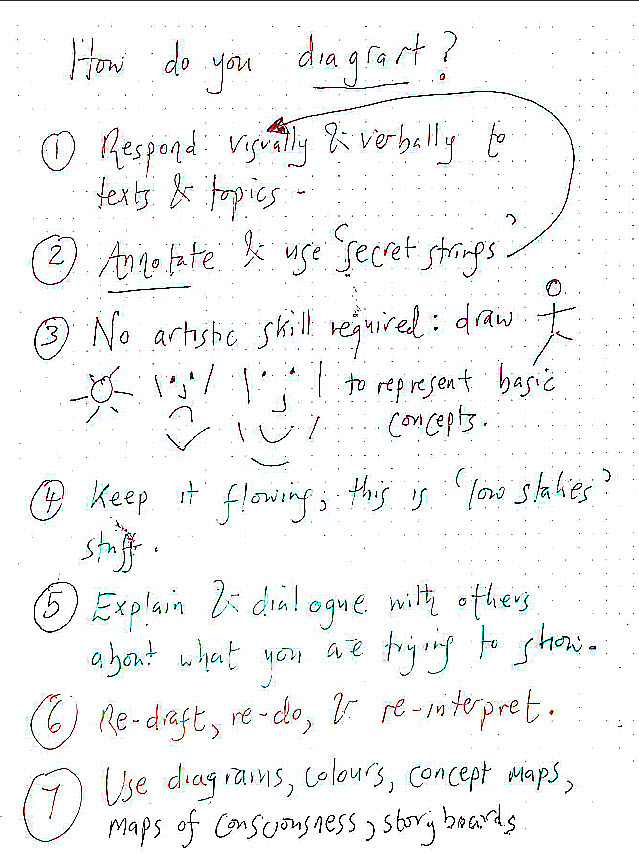 How do you diagrart?
① Respond visually & verbally to
texts & topics -
② Annotate & use 'secret strings'
③ No artistic skill required: draw
to represent basic
concepts.
④ Keep it flowing; this is 'low stakes'
stuff.
⑤ Explain & dialogue with others
about what you are trying to show.
⑥ Re-draft, re-do, & re-interpret.
⑦ Use diagrams, colours, concept maps,
maps of consciousness, storyboards